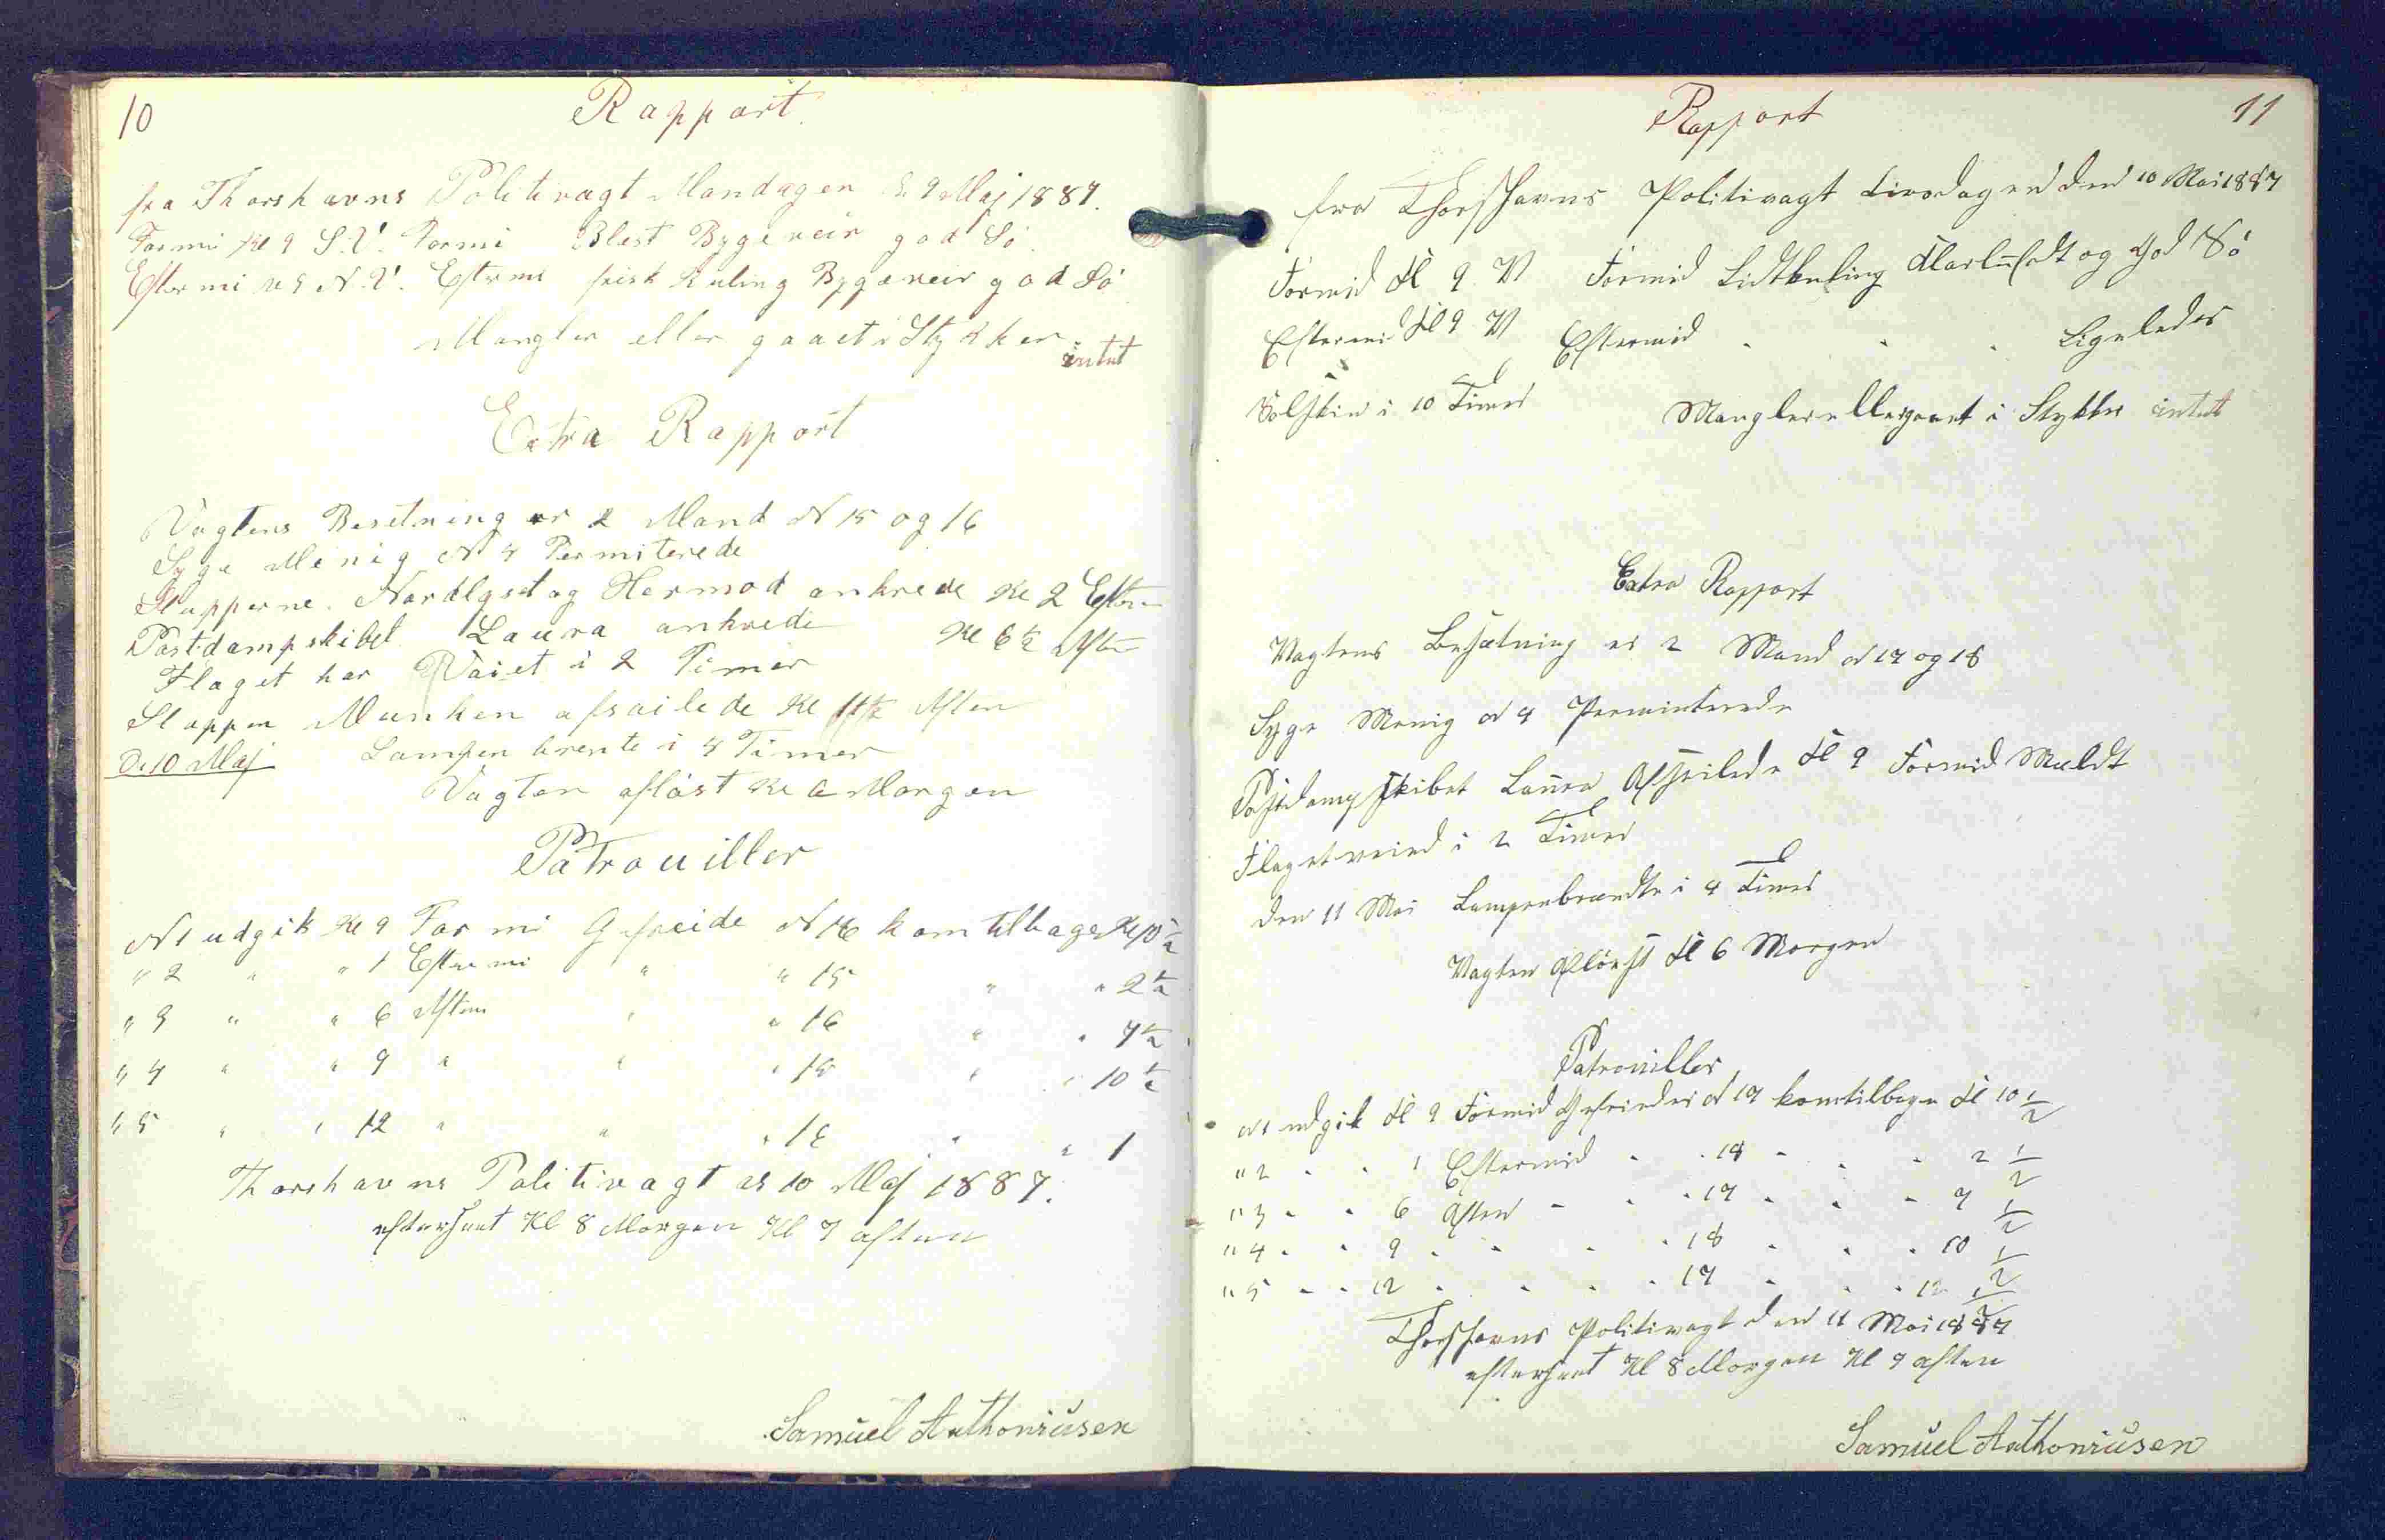 10
Rapport.
fra Thorshavns Politivagt Mandagen d. 9 Maj 1887.
Formi Kl 9 S.V. Formi Blest Bygeveir god Sö.
Eftermi Kl 9 N.V. Efterm frisk Kuling Bygeveir god Sö
Mangler eller gaaet i Stykker. intet
Extra Rapport
Vagtens Besetning er 2 Mand N 15 og 16
Syge Menig N 4 Permiterede
Slupperne Nordlyset og Hermod ankrede Kl 2 Efterm
Postdampskibet Laura ankrede Kl 6½ Aften
Flaget har Vaiet i 2 Timer
Sluppen Munken afsailede Kl 11½ Aften
D. 10 Maj Lampen brente i 4 Timer
Vagten aflöst Kl 6 Morgen
Patrouiller
N 1 udgik Kl 9 Formi Gefreide N 16 kom tilbage Kl 10½
" 2 " " 1 Eftermi " " 15 " " 2½
" 3 " " 6 Aften " " 16 " " 7½
" 4 " " 9 " " " 15 " " 10½
" 5 " " 12 " " " 16 " " 1
Thorshavns Politivagt d 10 Maj 1887.
efterseet Kl 8 Morgen Kl 9 aften
Samuel Anthoniusen
11
Rapport
fra Thorshavns Politivagt Tirsdagen den 10 Mai 1887
Formid Kl 9 V Formid Lidtkuling Klarluft og God Sö
Eftermid Kl 9 V Eftermid " " " Ligeledes
Solskin i 10 Timer Mangler eller gaaet i Stykker intet
Extra Rapport
Vagtens Besætning er 2 Mand N 17 og 18
Syge Menig N 4 Perminterede
Postdampskibet Laura Afseilede Kl 9 Formid
Flaget veied i 2 Timer
Den 11 Mai Lampen brændte i 4 Timer
Vagten Aflöest Kl 6 Morgen
Patrouiller
N 1 udgik Kl 9 Formid Gefreider N 17 kom tilbage Kl 10 ½
" 2 " " 1 Eftermid " " 18 " " " 2 ½
" 3 " " 6 Aften " " " 17 " " " 7 ½
" 4 " " 9 " " " " 18 " " " 10 ½
" 5 " " 12 " " " " 17 " " " 12 ½
Thorshavns Politivagt den 11 Mai 1887
efterseet Kl 8 Morgen Kl 9 aften
Samuel Anthoniusen